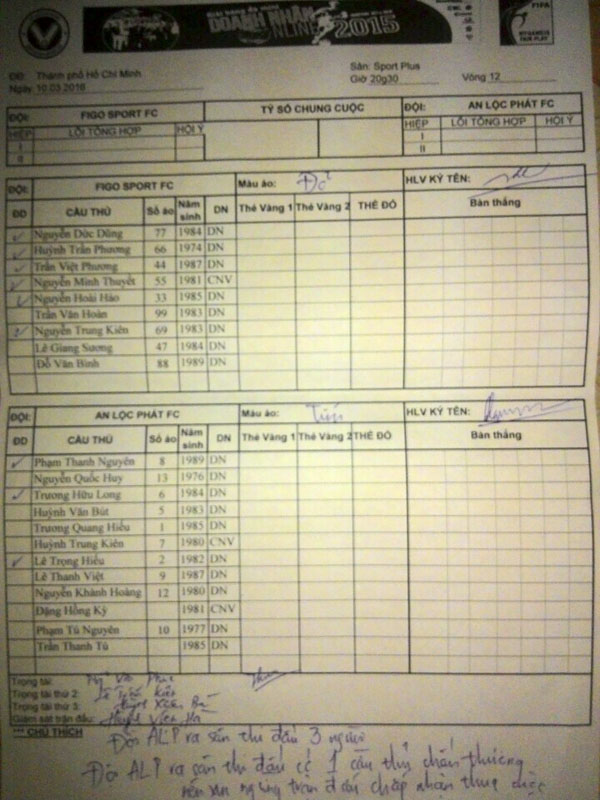 DOANH NHÂN
ONLINE 2015
FIFA
MY GAME IS
FAIR PLAY
ĐĐ: Thành phố Hồ Chí Minh
Sân: Sport Plus
Ngày 10.03.2016
Giờ 20g30
Vòng 12
ĐỘI: FIGO SPORT FC TỶ SỐ CHUNG CUỘC ĐỘI: AN LỘC PHÁT FC
HIỆP LỖI TỔNG HỢP HỘI Ý HIỆP LỖI TỔNG HỢP HỘI Ý
I I
II II
ĐỘI: FIGO SPORT FC Màu áo: Đỏ HLV KÝ TÊN:
ĐD CẦU THỦ Số áo Năm sinh DN Thẻ Vàng 1 Thẻ Vàng 2 THẺ ĐỎ Bàn thắng
Nguyễn Đức Dũng 77 1984 DN
Huỳnh Trần Phương 66 1974 DN
Trần Việt Phương 44 1987 DN
Nguyễn Minh Thuyết 55 1981 CNV
Nguyễn Hoài Hảo 33 1985 DN
Trần Văn Hoàn 99 1983 DN
Nguyễn Trung Kiên 69 1983 DN
Lê Giang Sương 47 1984 DN
Đỗ Văn Bình 88 1989 DN
ĐỘI: AN LỘC PHÁT FC Màu áo: HLV KÝ TÊN:
ĐD CẦU THỦ Số áo Năm sinh DN Thẻ Vàng 1 Thẻ Vàng 2 THẺ ĐỎ Bàn thắng
Phạm Thanh Nguyên 8 1989 DN
Nguyễn Quốc Huy 13 1976 DN
Trương Hữu Long 6 1984 DN
Huỳnh Văn Bút 5 1983 DN
Trương Quang Hiếu 1 1985 DN
Huỳnh Trung Kiên 7 1980 CNV
Lê Trọng Hiếu 2 1982 DN
Lê Thanh Việt 9 1987 DN
Nguyễn Khánh Hoàng 12 1980 DN
Đặng Hồng Kỳ 1981 CNV
Phạm Tú Nguyên 10 1977 DN
Trần Thanh Tú 1985 DN
Trọng tài:
Trọng tài thứ 2:
Trọng tài thứ 3:
Giám sát trận đấu:
*** CHÚ THÍCH
Đội ALP ra sân thi đấu 3 người
Đội ALP ra sân thi đấu có 1 cầu thủ chấn thương
nên xin ngưng trận đấu chấp nhận thua cuộc